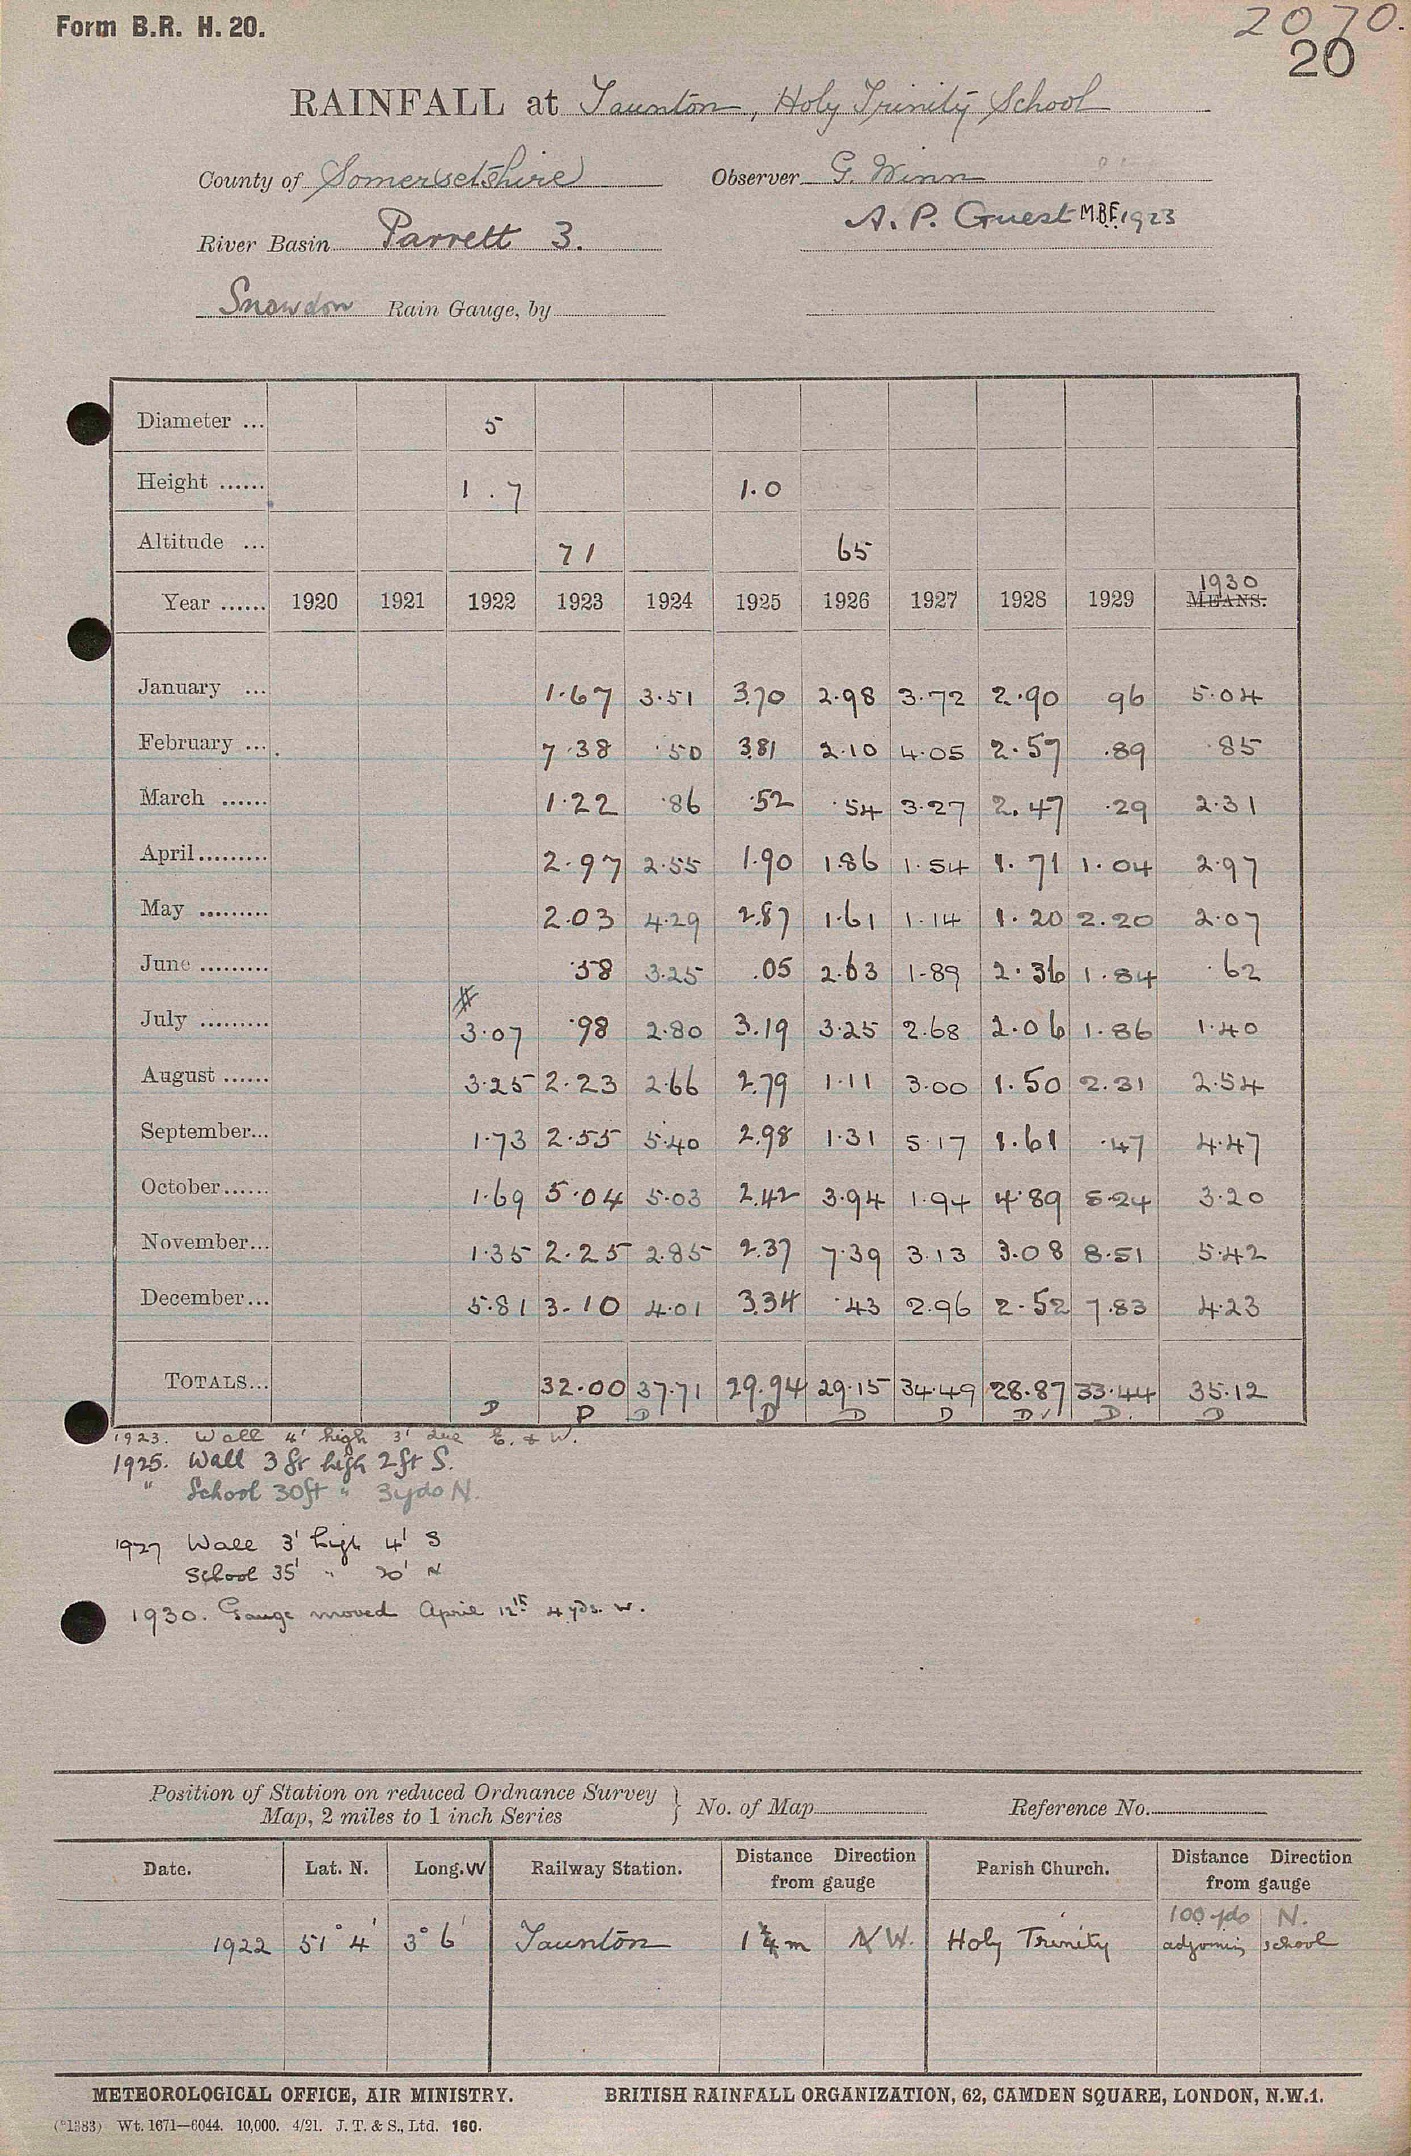 Form B.R. H. 20.
2070.
20
RAINFALL at Taunton, Holy Trinity School
County of Somersetshire Observer G. Winn
A. P. Guest M.B.E. 1923
River Basin Parrett 3.
Snowdon Rain Gauge, by
Diameter ... 5
Height ...... 1.7 1.0
Altitude ... 71 65
Year ...... 1920 1921 1922 1923 1924 1925 1926 1927 1928 1929 1930 MEANS.
January ... 1.67 3.51 3.70 2.98 3.72 2.90 .96 5.04
February ... 7.38 .50 3.81 2.10 4.05 2.57 .89 .85
March ...... 1.22 .86 .52 .54 3.27 2.47 .29 2.31
April ......... 2.97 2.55 1.90 1.86 1.54 1.71 1.04 2.97
May ......... 2.03 4.29 2.87 1.61 1.14 1.20 2.20 2.07
June ......... .58 3.25 .05 2.63 1.89 2.36 1.84 .62
July ......... 3.07 .98 2.80 3.19 3.25 2.68 2.06 1.86 1.40
August ...... 3.25 2.23 2.66 2.79 1.11 3.00 1.50 2.31 2.54
September... 1.73 2.55 5.40 2.98 1.31 5.17 1.61 .47 4.47
October...... 1.69 5.04 5.03 2.42 3.94 1.94 4.89 5.24 3.20
November... 1.35 2.25 2.85 2.37 7.39 3.13 3.08 8.51 5.42
December... 5.81 3.10 4.01 3.34 .43 2.96 2.52 7.83 4.23
TOTALS... 32.00 37.71 29.94 29.15 34.49 28.87 33.44 35.12
D D D D D D D D D
1923. Wall 4' high 3' due E. & W.
1925. Wall 3 ft high 2 ft S.
" School 30ft " 3 yds N.
1927 Wall 3' high 4' S
School 35' " 20' N
1930. Gauge moved April 12th 4 yds. W.
Position of Station on reduced Ordnance Survey
Map, 2 miles to 1 inch Series
No. of Map Reference No.
Date. Lat. N. Long. W Railway Station. Distance Direction from gauge Parish Church. Distance Direction from gauge
100 yds N.
1922 51° 4' 3° 6' Taunton 1 1/4 m N W. Holy Trinity adjoining school
METEOROLOGICAL OFFICE, AIR MINISTRY. BRITISH RAINFALL ORGANIZATION, 62, CAMDEN SQUARE, LONDON, N.W.1.
(*1383) Wt. 1671—6044. 10,000. 4/21. J. T. & S., Ltd. 160.